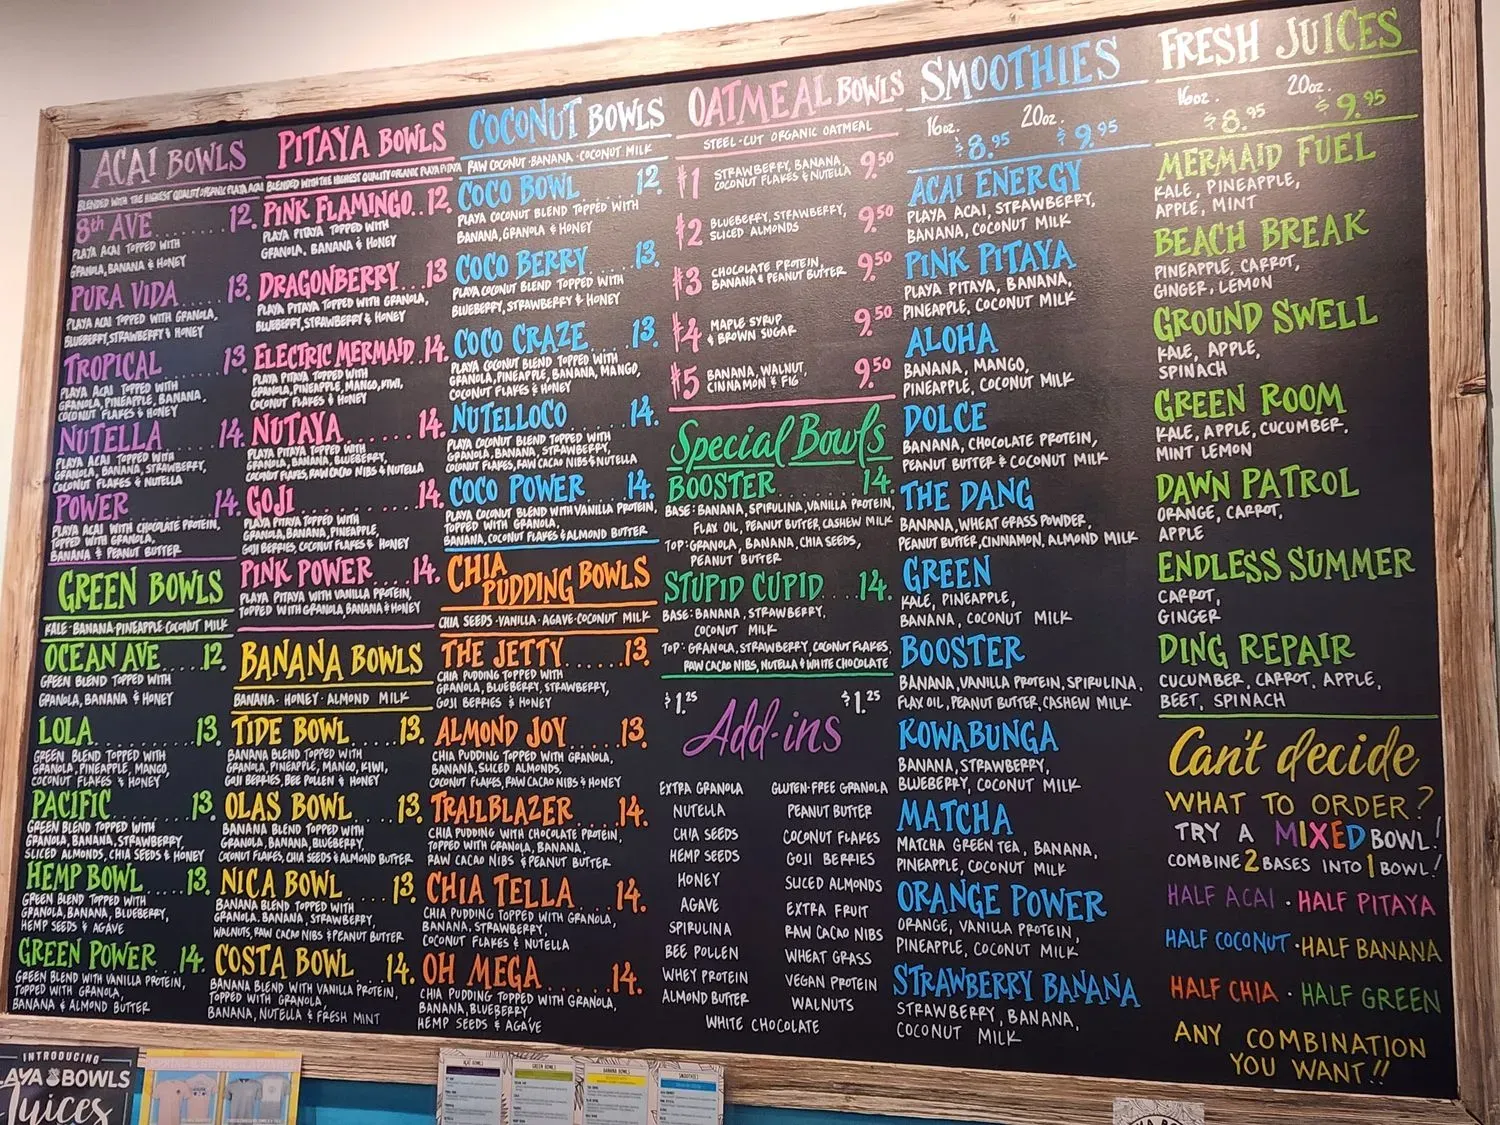 ACAI BOWLS
BLENDED WITH THE HIGHEST QUALITY ORGANIC PLAYA ACAI
8th AVE........12.
PLAYA ACAI TOPPED WITH
GRANOLA, BANANA & HONEY
PURA VIDA......13.
PLAYA ACAI TOPPED WITH GRANOLA,
BLUEBERRY, STRAWBERRY & HONEY
TROPICAL......13.
PLAYA ACAI TOPPED WITH
GRANOLA, PINEAPPLE, BANANA,
COCONUT FLAKES & HONEY
NUTELLA......14.
PLAYA ACAI TOPPED WITH
GRANOLA, BANANA, STRAWBERRY,
COCONUT FLAKES & NUTELLA
POWER........14.
PLAYA ACAI WITH CHOCOLATE PROTEIN,
TOPPED WITH GRANOLA,
BANANA & PEANUT BUTTER
GREEN BOWLS
KALE · BANANA · PINEAPPLE · COCONUT MILK
OCEAN AVE....12.
GREEN BLEND TOPPED WITH
GRANOLA, BANANA & HONEY
LOLA..........13.
GREEN BLEND TOPPED WITH
GRANOLA, PINEAPPLE, MANGO,
COCONUT FLAKES & HONEY
PACIFIC.......13.
GREEN BLEND TOPPED WITH
GRANOLA, BANANA, STRAWBERRY,
SLICED ALMONDS, CHIA SEEDS & HONEY
HEMP BOWL...13.
GREEN BLEND TOPPED WITH
GRANOLA, BANANA, BLUEBERRY,
HEMP SEEDS & AGAVE
GREEN POWER..14.
GREEN BLEND WITH VANILLA PROTEIN,
TOPPED WITH GRANOLA,
BANANA & ALMOND BUTTER
PITAYA BOWLS
BLENDED WITH THE HIGHEST QUALITY ORGANIC PLAYA PITAYA
PINK FLAMINGO..12.
PLAYA PITAYA TOPPED WITH
GRANOLA, BANANA & HONEY
DRAGONBERRY...13
PLAYA PITAYA TOPPED WITH GRANOLA,
BLUEBERRY, STRAWBERRY & HONEY
ELECTRIC MERMAID..14.
PLAYA PITAYA TOPPED WITH
GRANOLA, PINEAPPLE, MANGO, KIWI,
COCONUT FLAKES & HONEY
NUTAYA.......14.
PLAYA PITAYA TOPPED WITH
GRANOLA, BANANA, BLUEBERRY,
COCONUT FLAKES, RAW CACAO NIBS & NUTELLA
GOJI..........14.
PLAYA PITAYA TOPPED WITH
GRANOLA, BANANA, PINEAPPLE,
GOJI BERRIES, COCONUT FLAKES & HONEY
PINK POWER....14.
PLAYA PITAYA WITH VANILLA PROTEIN,
TOPPED WITH GRANOLA, BANANA & HONEY
BANANA BOWLS
BANANA · HONEY · ALMOND MILK
TIDE BOWL.....13.
BANANA BLEND TOPPED WITH
GRANOLA, PINEAPPLE, MANGO, KIWI,
GOJI BERRIES, BEE POLLEN & HONEY
OLAS BOWL.....13.
BANANA BLEND TOPPED WITH
GRANOLA, BANANA, BLUEBERRY,
COCONUT FLAKES, CHIA SEEDS & ALMOND BUTTER
NICA BOWL.....13.
BANANA BLEND TOPPED WITH
GRANOLA, BANANA, STRAWBERRY,
WALNUTS, RAW CACAO NIBS & PEANUT BUTTER
COSTA BOWL....14.
BANANA BLEND WITH VANILLA PROTEIN,
TOPPED WITH GRANOLA,
BANANA, NUTELLA & FRESH MINT
COCONUT BOWLS
RAW COCONUT · BANANA · COCONUT MILK
COCO BOWL.....12.
PLAYA COCONUT BLEND TOPPED WITH
BANANA, GRANOLA & HONEY
COCO BERRY....13.
PLAYA COCONUT BLEND TOPPED WITH
BLUEBERRY, STRAWBERRY & HONEY
COCO CRAZE....13.
PLAYA COCONUT BLEND TOPPED WITH
GRANOLA, PINEAPPLE, BANANA, MANGO,
COCONUT FLAKES & HONEY
NUTELLOCO.....14.
PLAYA COCONUT BLEND TOPPED WITH
GRANOLA, BANANA, STRAWBERRY,
COCONUT FLAKES, RAW CACAO NIBS & NUTELLA
COCO POWER....14.
PLAYA COCONUT BLEND WITH VANILLA PROTEIN,
TOPPED WITH GRANOLA,
BANANA, COCONUT FLAKES & ALMOND BUTTER
CHIA
PUDDING BOWLS
CHIA SEEDS · VANILLA · AGAVE · COCONUT MILK
THE JETTY......13.
CHIA PUDDING TOPPED WITH
GRANOLA, BLUEBERRY, STRAWBERRY,
GOJI BERRIES & HONEY
ALMOND JOY.....13.
CHIA PUDDING TOPPED WITH GRANOLA,
BANANA, SLICED ALMONDS,
COCONUT FLAKES, RAW CACAO NIBS & HONEY
TRAILBLAZER....14.
CHIA PUDDING WITH CHOCOLATE PROTEIN,
TOPPED WITH GRANOLA, BANANA,
RAW CACAO NIBS & PEANUT BUTTER
CHIA TELLA.....14.
CHIA PUDDING TOPPED WITH GRANOLA,
BANANA, STRAWBERRY,
COCONUT FLAKES & NUTELLA
OH MEGA.......14.
CHIA PUDDING TOPPED WITH GRANOLA,
BANANA, BLUEBERRY,
HEMP SEEDS & AGAVE
OATMEAL BOWLS
STEEL-CUT ORGANIC OATMEAL
#1 STRAWBERRY, BANANA, 9.50
COCONUT FLAKES & NUTELLA
#2 BLUEBERRY, STRAWBERRY, 9.50
SLICED ALMONDS
#3 CHOCOLATE PROTEIN, 9.50
BANANA & PEANUT BUTTER
#4 MAPLE SYRUP 9.50
& BROWN SUGAR
#5 BANANA, WALNUT, 9.50
CINNAMON & FIG
Special Bowls
BOOSTER........14.
BASE: BANANA, SPIRULINA, VANILLA PROTEIN,
FLAX OIL, PEANUT BUTTER, CASHEW MILK
TOP: GRANOLA, BANANA, CHIA SEEDS,
PEANUT BUTTER
STUPID CUPID....14.
BASE: BANANA, STRAWBERRY,
COCONUT MILK
TOP: GRANOLA, STRAWBERRY, COCONUT FLAKES,
RAW CACAO NIBS, NUTELLA & WHITE CHOCOLATE
$1.25 Add-ins $1.25
EXTRA GRANOLA GLUTEN-FREE GRANOLA
NUTELLA PEANUT BUTTER
CHIA SEEDS COCONUT FLAKES
HEMP SEEDS GOJI BERRIES
HONEY SLICED ALMONDS
AGAVE EXTRA FRUIT
SPIRULINA RAW CACAO NIBS
BEE POLLEN WHEAT GRASS
WHEY PROTEIN VEGAN PROTEIN
ALMOND BUTTER WALNUTS
WHITE CHOCOLATE
SMOOTHIES
16oz. $8.95 20oz. $9.95
ACAI ENERGY
PLAYA ACAI, STRAWBERRY,
BANANA, COCONUT MILK
PINK PITAYA
PLAYA PITAYA, BANANA,
PINEAPPLE, COCONUT MILK
ALOHA
BANANA, MANGO,
PINEAPPLE, COCONUT MILK
DOLCE
BANANA, CHOCOLATE PROTEIN,
PEANUT BUTTER & COCONUT MILK
THE DANG
BANANA, WHEAT GRASS POWDER,
PEANUT BUTTER, CINNAMON, ALMOND MILK
GREEN
KALE, PINEAPPLE,
BANANA, COCONUT MILK
BOOSTER
BANANA, VANILLA PROTEIN, SPIRULINA,
FLAX OIL, PEANUT BUTTER, CASHEW MILK
KOWABUNGA
BANANA, STRAWBERRY,
BLUEBERRY, COCONUT MILK
MATCHA
MATCHA GREEN TEA, BANANA,
PINEAPPLE, COCONUT MILK
ORANGE POWER
ORANGE, VANILLA PROTEIN,
PINEAPPLE, COCONUT MILK
STRAWBERRY BANANA
STRAWBERRY, BANANA,
COCONUT MILK
FRESH JUICES
16oz. $8.95 20oz. $9.95
MERMAID FUEL
KALE, PINEAPPLE,
APPLE, MINT
BEACH BREAK
PINEAPPLE, CARROT,
GINGER, LEMON
GROUND SWELL
KALE, APPLE,
SPINACH
GREEN ROOM
KALE, APPLE, CUCUMBER,
MINT LEMON
DAWN PATROL
ORANGE, CARROT,
APPLE
ENDLESS SUMMER
CARROT,
GINGER
DING REPAIR
CUCUMBER, CARROT, APPLE,
BEET, SPINACH
Can't decide
WHAT TO ORDER?
TRY A MIXED BOWL!
COMBINE 2 BASES INTO 1 BOWL!
HALF ACAI · HALF PITAYA
HALF COCONUT · HALF BANANA
HALF CHIA · HALF GREEN
ANY COMBINATION
YOU WANT!!
INTRODUCING
BOWLS
Juices
ACAI BOWLS
GREEN BOWLS
BANANA BOWLS
SMOOTHIES